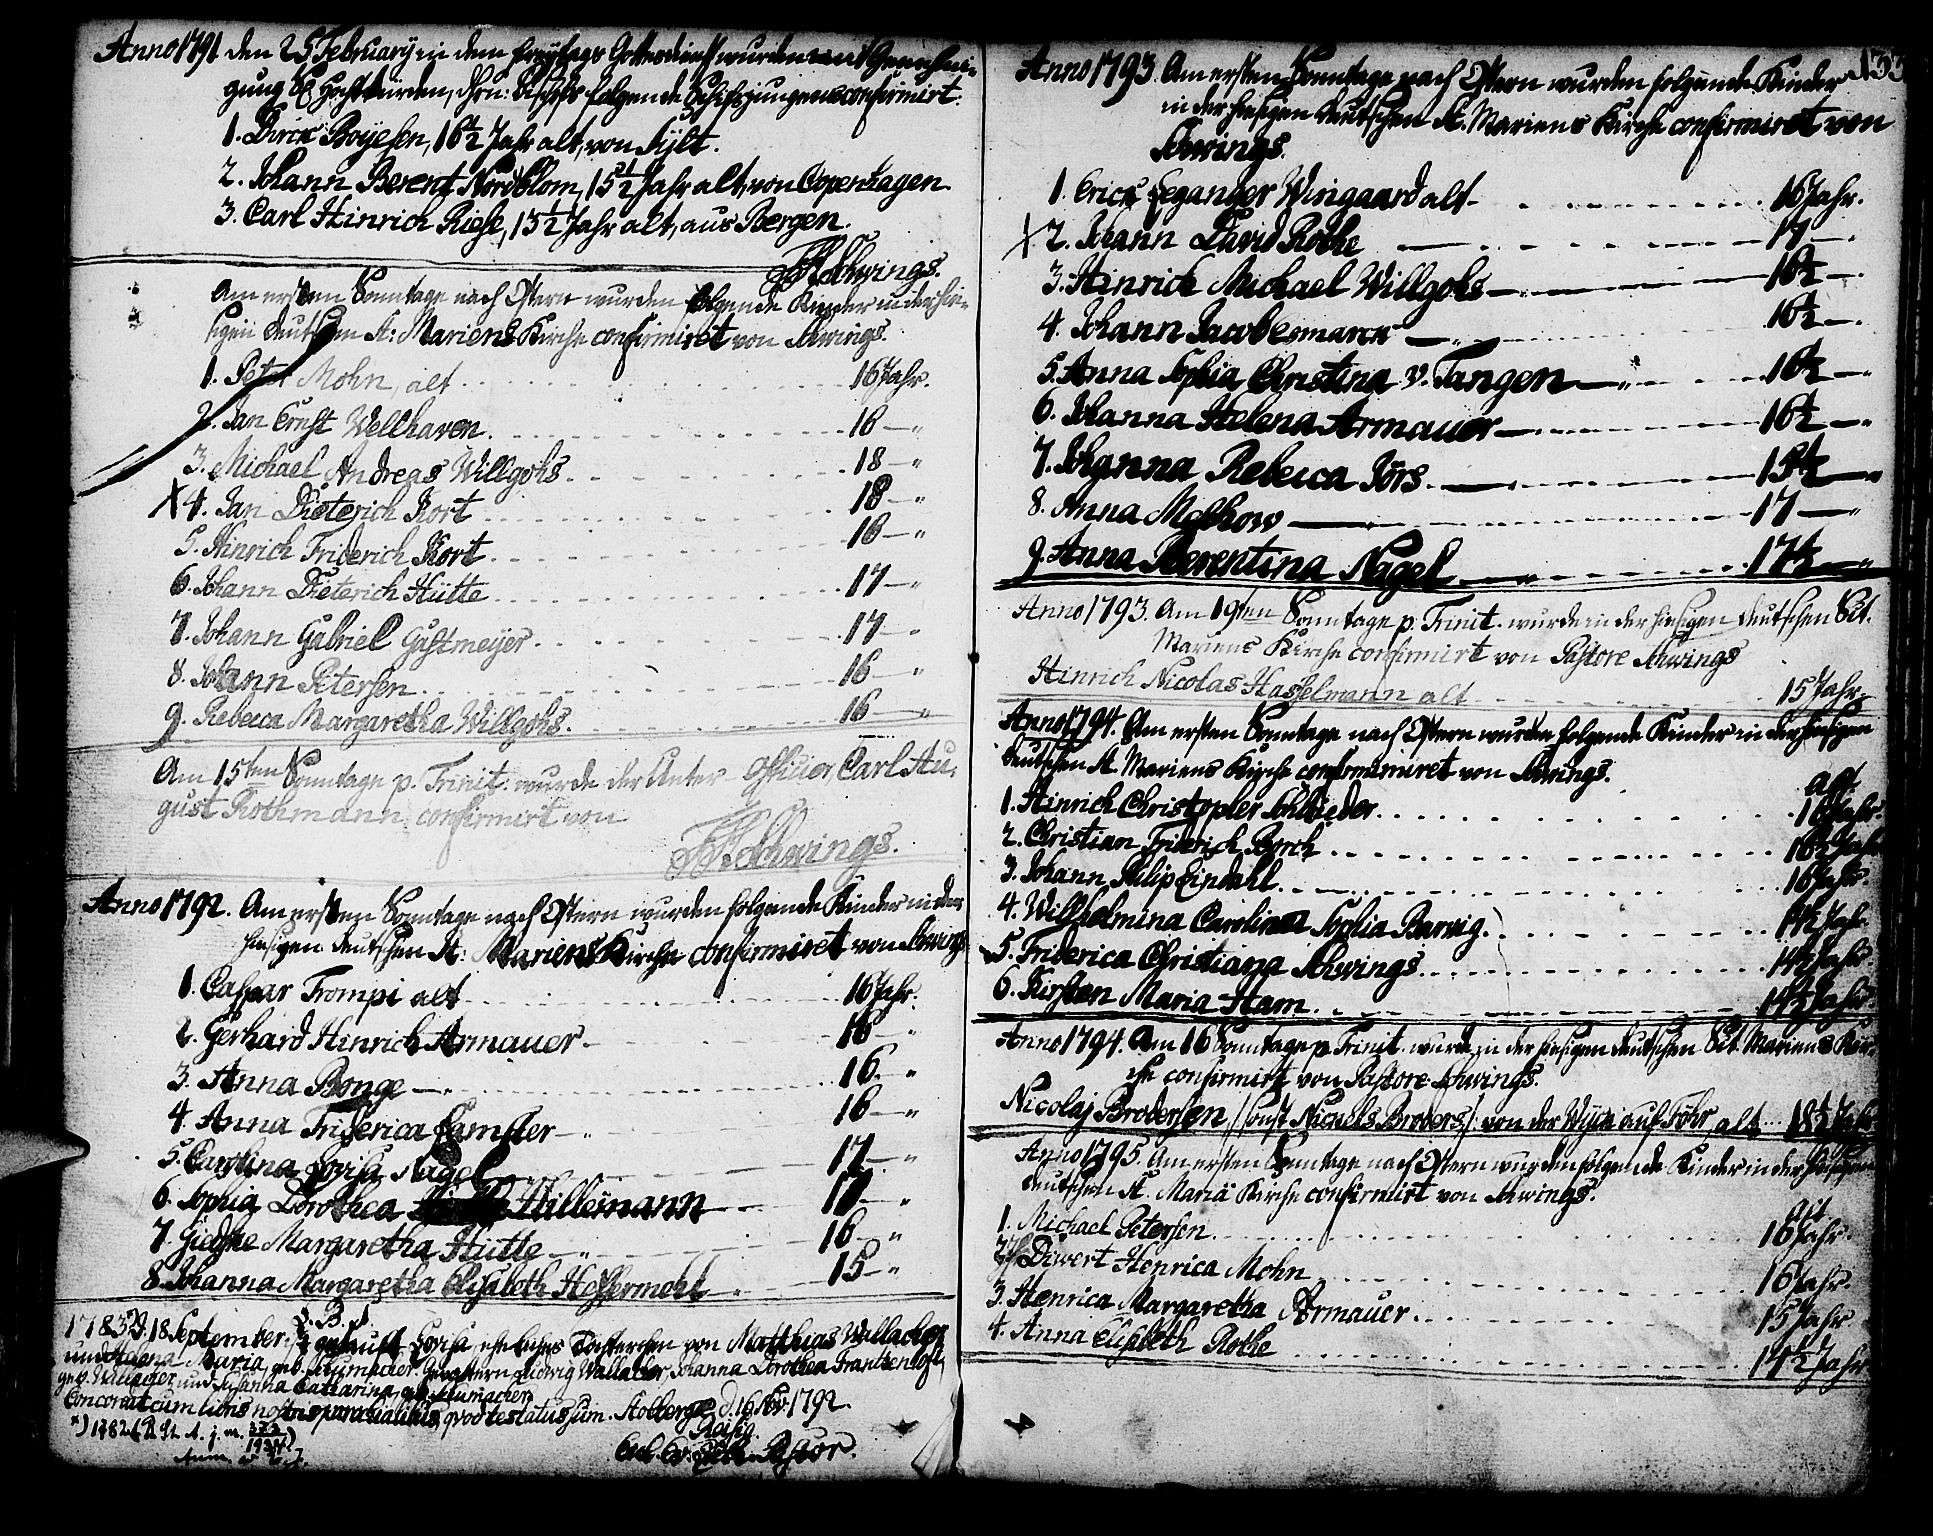 Anno 1791 den 25 February in dem Freytags Gottesdienst wurden mit Genehmi-
gung Sr Hochwürden, Hrn: Bischofs folgende Schiffsjungens confirmirt:
1. Dirck Boyesen, 16½ Jahr alt, von Sylt.
2. Johann Berent Nordblom, 15½ Jahr alt, von Copenhagen.
3. Carl Hinrich Riese, 13½ Jahr alt, aus Bergen.
Schwings.
Am ersten Sonntage nach Ostern wurden folgende Kinder in der hie-
sigen deutschen St: Mariens Kirche confirmiret von Schwings.
1. Peter Mohn, alt 16 Jahr.
2. Jan Ernst Wellhaven. 16 — "
3. Michael Andreas Willgohs. 18 — "
X 4. Jan Dieterich Kort 18 — "
5. Hinrich Friderich Kort. 16 — "
6. Johann Dieterich Hütte 17 — "
7. Johann Gabriel Gastmeyer. 17 — "
8. Johann Petersen. 16 — "
9. Rebecca Margaretha Willgohs. 16 — "
Am 15ten Sonntage p. Trinit: wurde der Unter-Officier, Carl Au-
gust Rothmann confirmirt von
Schwings.
Anno 1792. Am ersten Sonntage nach Ostern wurden folgende Kinder in der
hiesigen deutschen St: Mariens Kirche confirmiret von Schwings
1. Caspar Trompi alt 16 Jahr.
2. Gerhard Hinrich Armauer 16 — "
3. Anna Bonge 16 — "
4. Anna Friderica 16 — "
5. Carolina Lovisa Nagel 17 — "
6. Sophia Dorothea Hillemann 17 — "
7. Giedske Margaretha Hütte 16 — "
8. Johanna Margaretha Elisabeth 15 — "
N. B.
1783 d. 18 September, ist getauft Lovisa, eheliches Töchterchen von Matthias Wallacher
und Helena Maria, geb. Schumacher. Gevattern Ludwig Wallacher, Johanna Dorothea
geb. Wallacher und Susanna Catharina, geb. Schumacher
Concordat cum libris nostris parochialibus, quod testatus sum. Stolberg, d. 16 1792.
Pastor.
*) 1782
133
Anno 1793. Am ersten Sonntage nach Ostern wurden folgende Kinder
in der hiesigen deutschen St. Mariens Kirche confirmiret von
Schwings.
1. Erick Wingaard alt 16 Jahr.
X 2. Johann David Rothe 17 — "
3. Hinrich Michael Willgohs 16½ — "
4. Johann Jacob 16½ — "
5. Anna Sophia Christina v. Tangen 16½ — "
6. Johanna Helena Armauer 16½ — "
7. Johanna Rebecca Jörs. 15½ — "
8. Anna 17 — "
9. Anna Berentina Nagel 17½ — "
Anno 1793. Am 19ten Sonntage p. Trinit. wurde in der hiesigen deutschen Sct.
Mariens Kirche confirmirt von Pastore Schwings
Hinrich Nicolas Hasselmann alt 15 Jahr.
Anno 1794. Am ersten Sonntage nach Ostern wurden folgende Kinder in der hiesigen
deutschen St. Mariens Kirche confirmiret von Schwings.
alt
1. Hinrich Christopher 16 Jahr.
2. Christian Friderich Borch 16½ Jahr
3. Johann Philip Lindahl. 16 Jahr.
4. Willhelmina Carolina Sophia Barvig. 14½ Jahr.
5. Friderica Christiana Schwings. 14½ Jahr
6. Kirsten Maria Ham. 14½ Jahr.
Anno 1794. Am 16 Sonntage p. Trinit. wurde in der hiesigen deutschen Sct. Mariens Kir-
che confirmirt von Pastore Schwings.
Nicolaj Brodersen /: sonst Nickels Broders :/ von der Wyck auf Föhr, alt 18½ Jahr
Anno 1795. Am ersten Sonntage nach Ostern wurden folgende Kinder in der hiesigen
deutschen St. Mariä Kirche confirmirt von Schwings.
alt
1. Michael Petersen 16 Jahr.
2. Diwert Henrica Mohn 16 Jahr.
3. Henrica Margaretha Armauer. 15 Jahr
4. Anna Elisabeth Rothe 14½ Jahr